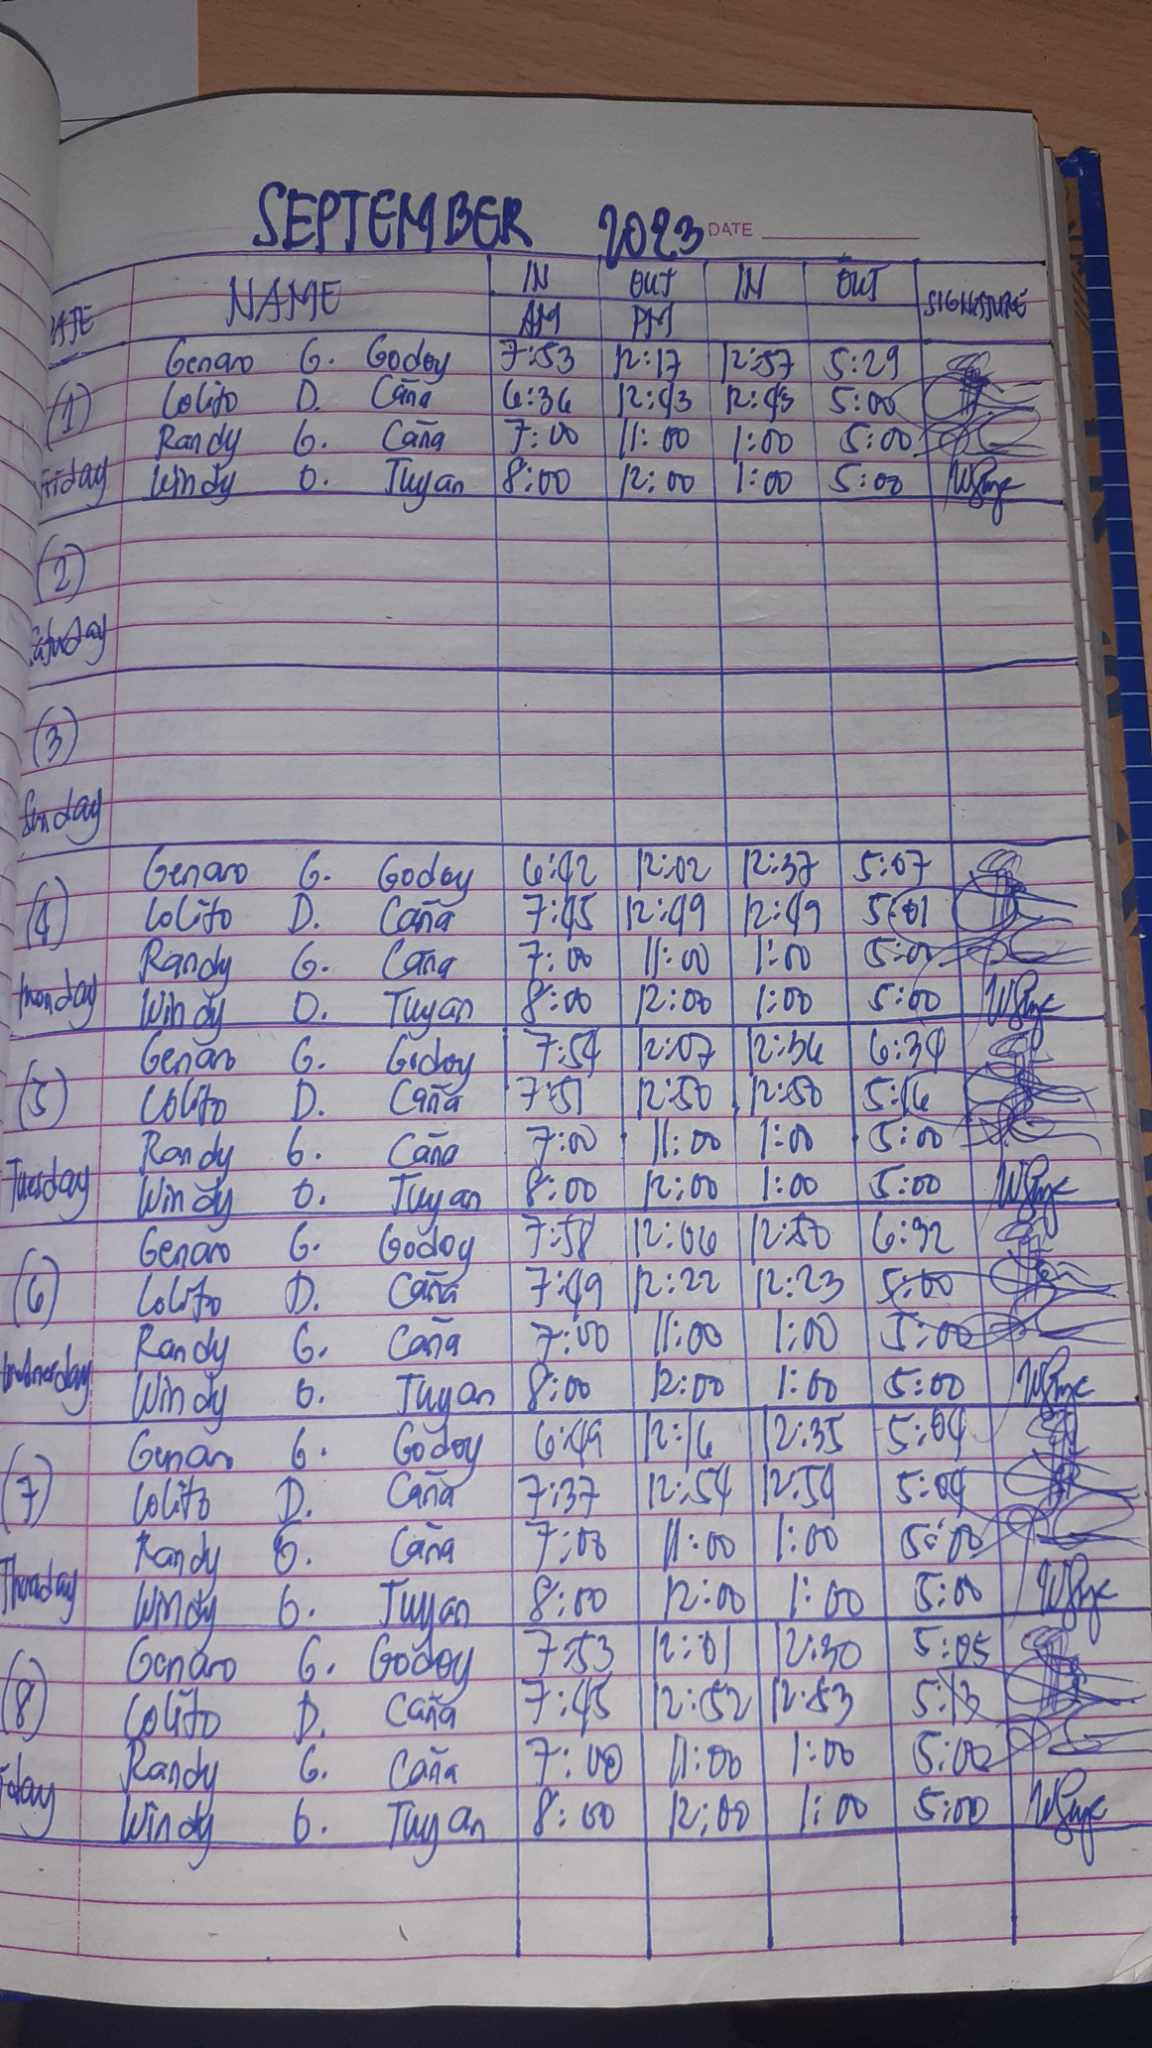 SEPTEMBER 2023 DATE
DATE NAME IN OUT IN OUT SIGNATURE
AM PM
(1) Friday
Genaro G. Godoy 7:53 12:17 12:57 5:29
Lolito D. Caña 6:36 12:43 12:43 5:00
Randy G. Caña 7:00 11:00 1:00 5:00
Windy O. Tuyan 8:00 12:00 1:00 5:00
(2)
Saturday
(3)
Sunday
(4) Monday
Genaro G. Godoy 6:42 12:02 12:37 5:07
Lolito D. Caña 7:45 12:49 12:49 5:01
Randy G. Caña 7:00 11:00 1:00 5:00
Windy O. Tuyan 8:00 12:00 1:00 5:00
(5) Tuesday
Genaro G. Godoy 7:54 12:07 12:36 6:34
Lolito D. Caña 7:51 12:50 12:50 5:16
Randy G. Caña 7:00 11:00 1:00 5:00
Windy O. Tuyan 8:00 12:00 1:00 5:00
(6) Wednesday
Genaro G. Godoy 7:58 12:06 12:50 6:32
Lolito D. Caña 7:49 12:22 12:23 5:00
Randy G. Caña 7:00 11:00 1:00 5:00
Windy O. Tuyan 8:00 12:00 1:00 5:00
(7) Thursday
Genaro G. Godoy 6:49 12:16 12:35 5:04
Lolito D. Caña 7:37 12:54 12:54 5:04
Randy G. Caña 7:00 11:00 1:00 5:00
Windy O. Tuyan 8:00 12:00 1:00 5:00
(8) Friday
Genaro G. Godoy 7:53 12:01 12:30 5:05
Lolito D. Caña 7:45 12:52 12:53 5:13
Randy G. Caña 7:00 11:00 1:00 5:00
Windy O. Tuyan 8:00 12:00 1:00 5:00